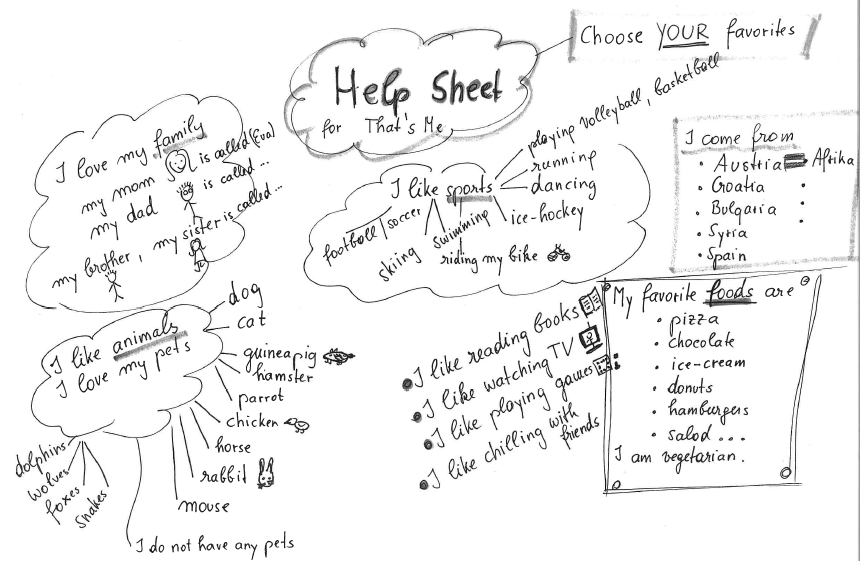 Choose YOUR favorites
Help Sheet
for That's Me
I love my family
my mom is called (Eva)
my dad is called ...
my brother, my sister is called ...
I like sports
playing volleyball, basketball
running
dancing
ice-hockey
swimming
riding my bike
skiing
football/soccer
I come from
Austria Afrika
Croatia
Bulgaria
Syria
Spain
I like animals
I love my pets
dog
cat
guineapig
hamster
parrot
chicken
horse
rabbit
mouse
I do not have any pets
dolphins
wolves
foxes
snakes
I like reading books
I like watching TV
I like playing games
I like chilling with
friends
My favorite foods are
pizza
chocolate
ice-cream
donuts
hamburgers
salad ...
I am vegetarian.